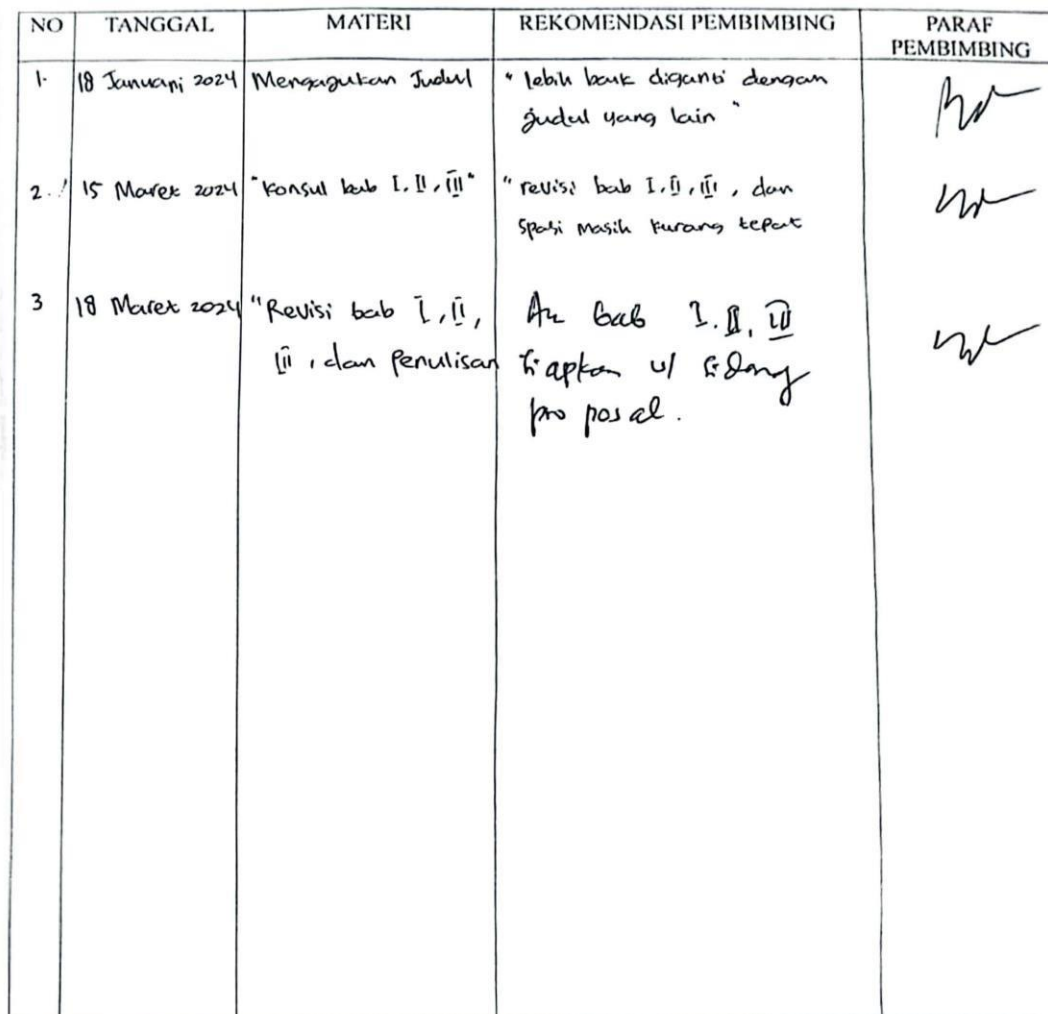 NO TANGGAL MATERI REKOMENDASI PEMBIMBING PARAF PEMBIMBING
1. 18 Januari 2024 Mengajukan Judul "lebih baik diganti dengan
judul yang lain"
2. 15 Maret 2024 "Konsul bab I, II, III" "revisi bab I, II, III, dan
spasi masih kurang tepat
3 18 Maret 2024 "Revisi bab I, II,
III, dan Penulisan
bab I. II, III
siapkan u/ sidang
proposal.